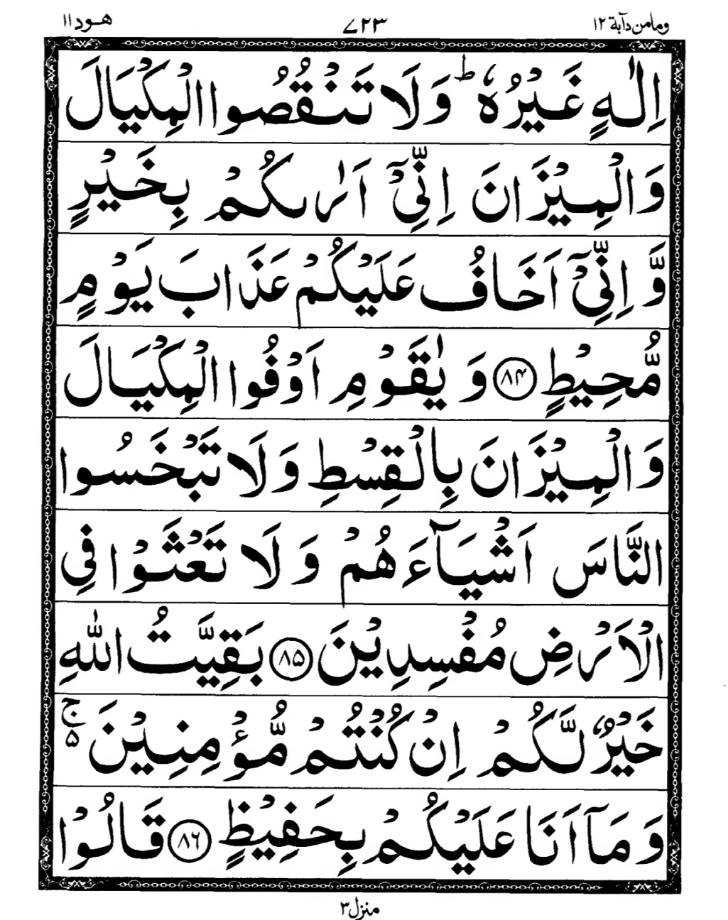 ومامن دآبة ١٢ ٧٢٣ هود ١١
اِلٰهٍ غَيْرُهٗ ؕ وَلَا تَنْقُصُوا الْمِكْيَالَ
وَالْمِيْزَانَ اِنِّيْۤ اَرٰىكُمْ بِخَيْرٍ
وَّ اِنِّيْۤ اَخَافُ عَلَيْكُمْ عَذَابَ يَوْمٍ
مُّحِيْطٍ ﴿۸۴﴾ وَ يٰقَوْمِ اَوْفُوا الْمِكْيَالَ
وَالْمِيْزَانَ بِالْقِسْطِ وَلَا تَبْخَسُوا
النَّاسَ اَشْيَآءَهُمْ وَلَا تَعْثَوْا فِي
الْاَرْضِ مُفْسِدِيْنَ ﴿۸۵﴾ بَقِيَّتُ اللّٰهِ
خَيْرٌ لَّكُمْ اِنْ كُنْتُمْ مُّؤْمِنِيْنَ ۚ ۵
وَمَاۤ اَنَا عَلَيْكُمْ بِحَفِيْظٍ ﴿۸۶﴾ قَالُوْا
منزل ۳